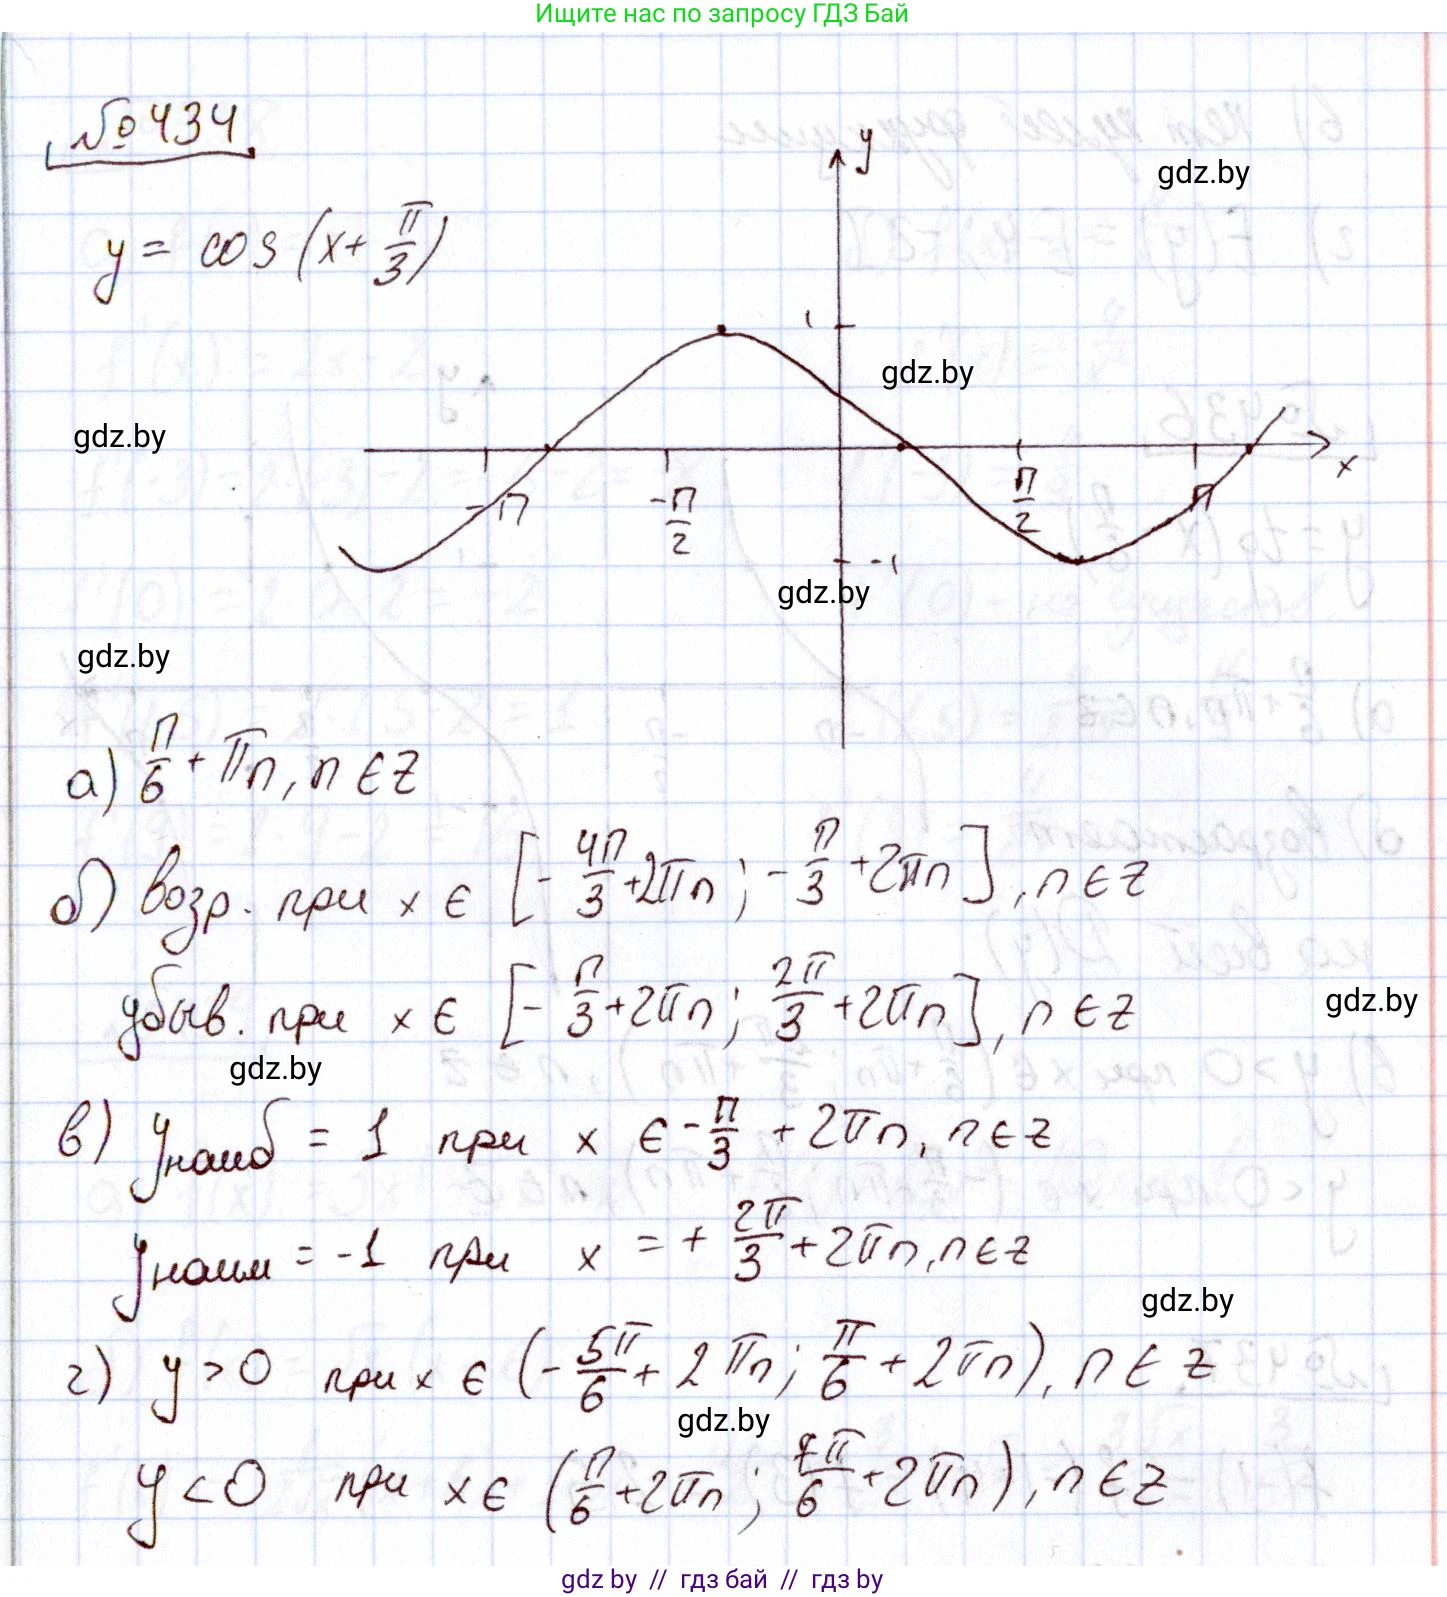 Ищите нас по запросу ГДЗ Бай
№434
y = cos (x + π/3)
y
gdz.by
1
gdz.by
gdz.by
x
-π
-π/2
π/2
π
-1
gdz.by
gdz.by
а) π/6 + πn, n ∈ Z
б) возр. при x ∈ [-4π/3 + 2πn; -π/3 + 2πn], n ∈ Z
убыв. при x ∈ [-π/3 + 2πn; 2π/3 + 2πn], n ∈ Z
gdz.by
gdz.by
в) yнаиб = 1 при x ∈ -π/3 + 2πn, n ∈ Z
yнаим = -1 при x = + 2π/3 + 2πn, n ∈ Z
gdz.by
г) y > 0 при x ∈ (-5π/6 + 2πn; π/6 + 2πn), n ∈ Z
gdz.by
y < 0 при x ∈ (π/6 + 2πn; 7π/6 + 2πn), n ∈ Z
gdz by // гдз бай // гдз by